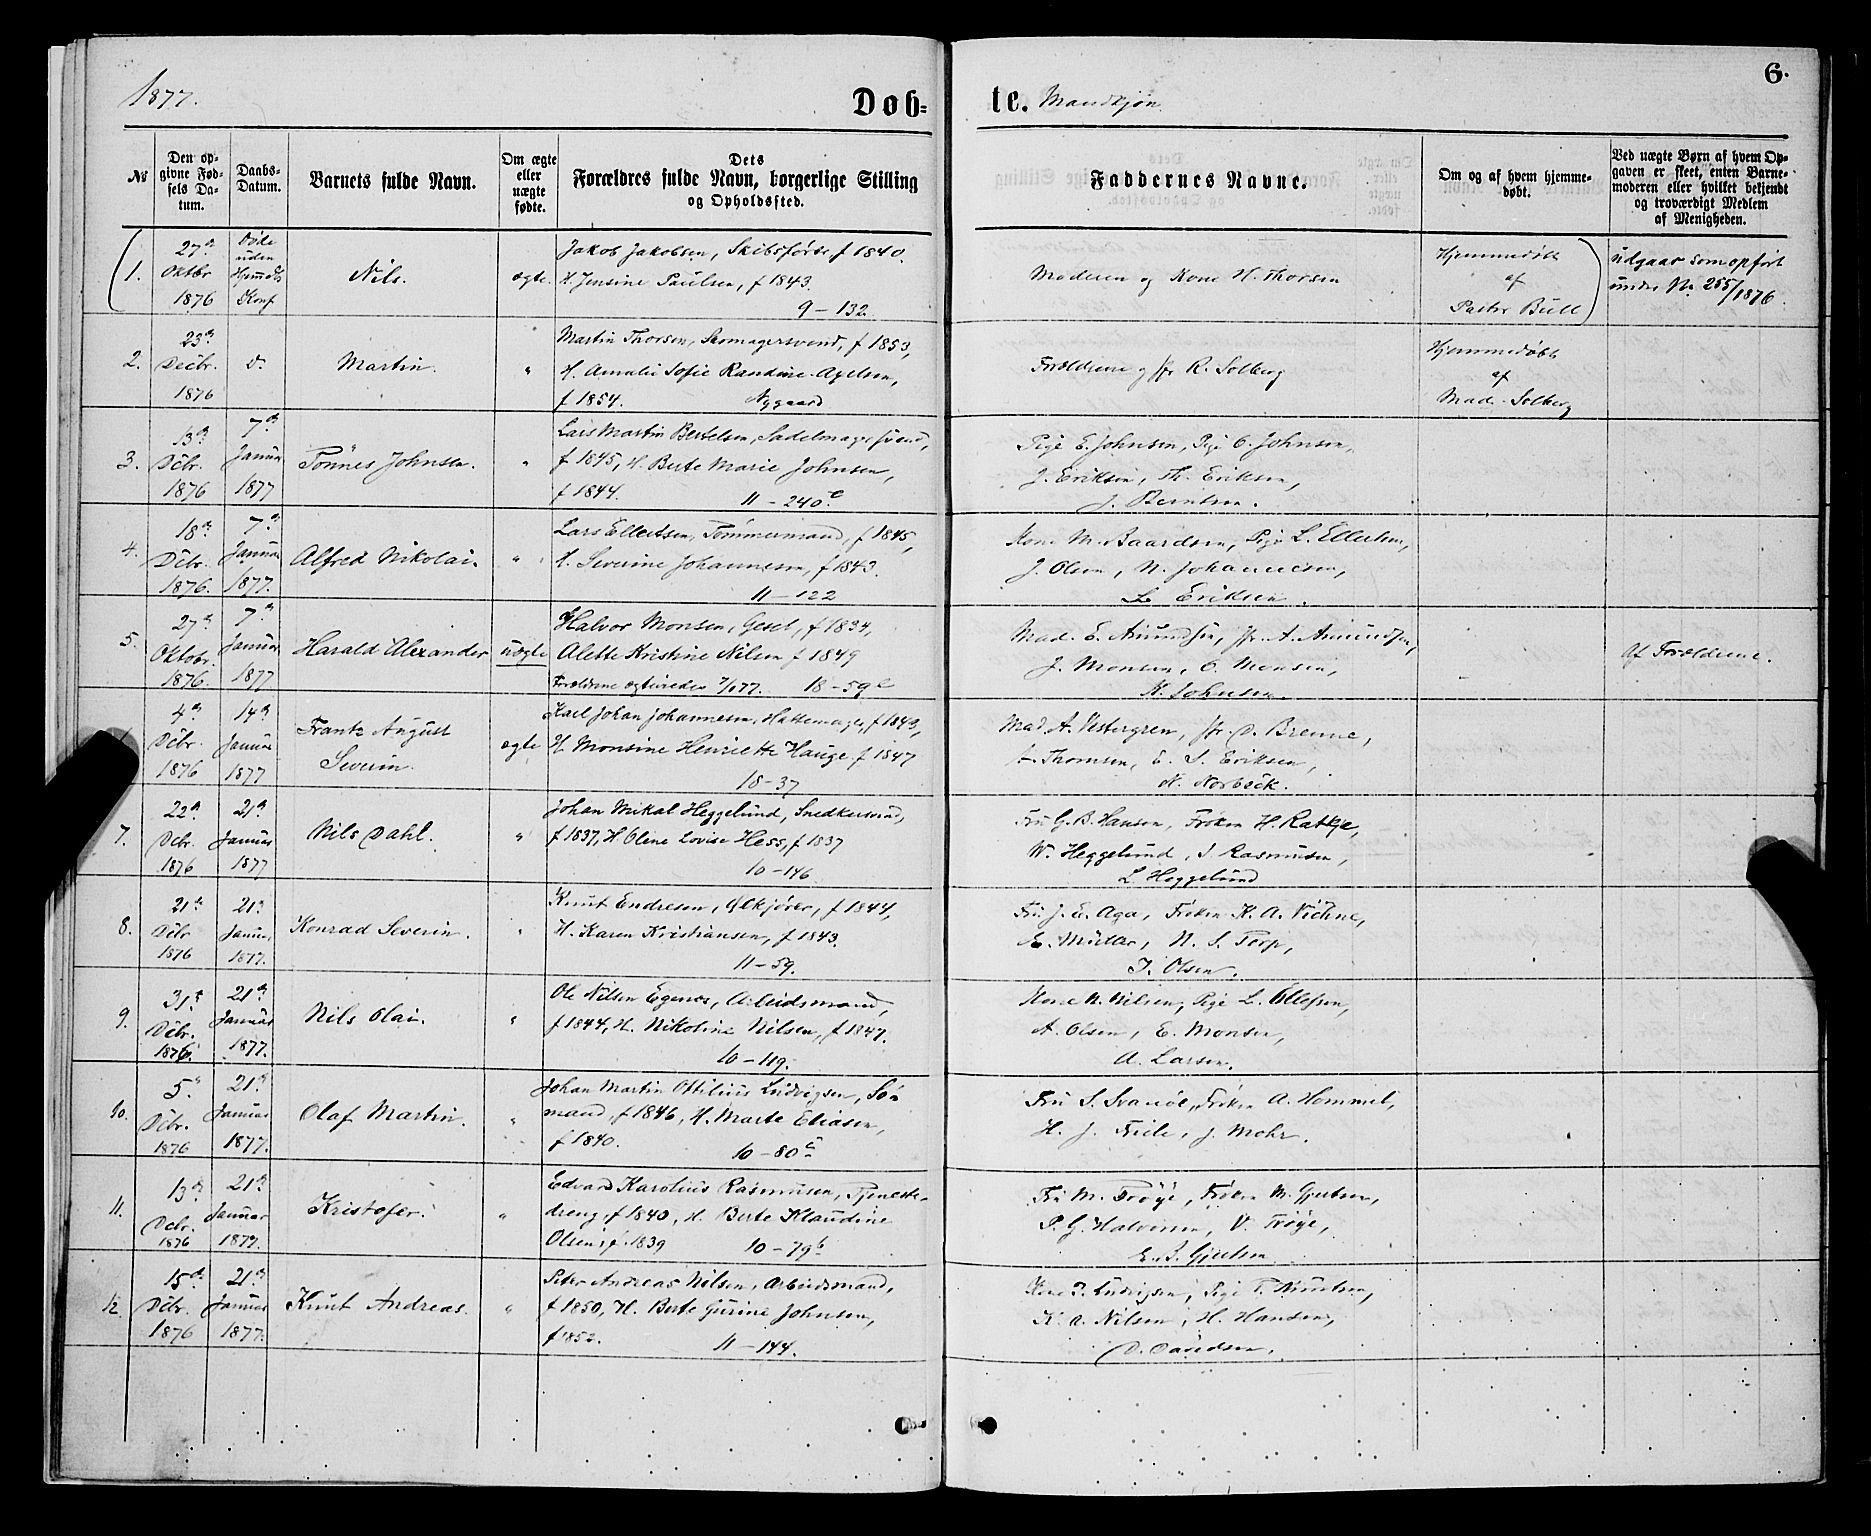 1877.
Døb-
te. Mandkjøn
6.
№
Den op-
givne Fød-
sels Da-
tum.
Daabs-
Datum.
Barnets fulde Navn.
Om ægte
eller
uægte
fødte.
Dets
Forældres fulde Navn, borgerlige Stilling
og Opholdssted.
Faddernes Navne.
Om og af hvem hjemme-
døbt.
Ved uægte Børn af hvem Op-
gaven er skeet, enten Barne-
moderen eller hvilket bekjendt
og troværdigt Medlem
af Menigheden.
1.
27de
Oktbr
1876
Døde
uden
Konf
Nils.
egte.
Jakob Jakobsen, Skibsfører f 1840.
H. Jensine Paulsen, f 1843.
9 – 132
Moderen og Kone H. Thorsen
Hjemmedøbt
af
Pastor Bull
udgaar som opført
under No 255/1876.
2.
23de
Decbr.
1876
d.
Martin.
"
Martin Thorsen, Skomagersvend, f 1853,
H. Amalie Sofie Randine Axelsen,
f 1854. Nygaard
Forældrene og Jfr R. Solberg
Hjemmedøbt
af
Mad. Solberg
3.
13de
Dcbr.
1876
7de
Januar
1877
Tönnes Johnsen.
"
Lars Martin Bertelsen, Sadelmagersvend,
f 1845, H. Berte Marie Johnsen,
f 1844. 11 – 240c
Pige E. Johnsen, Pige O. Johnson,
J. Eriksen, Th. Eriksen,
J. Berntsen.
4.
18de
Dcbr.
1876.
7de
Januar
1877.
Alfred Nikolai.
"
Lars Ellertsen, Tömmermand, f 1845,
H. Severine Johannesen, f 1843.
11 – 122
Kone M. Baardsen, Pige L. Ellertsen,
J. Olsen, N. Johannesen,
L. Eriksen.
5.
27de
Oktobr.
1876.
7de
Januar
1877
Harald Alexander
uægte
Halvor Monsen, Gesel, f 1834,
Alette Kristine Nilsen f 1849
Forældrene egteviedes 7/1 77. 18 – 59c
Mad. E. Amundsen, Jfr. A. Amundsen,
J. Monsen, O. Monsen,
N. Johnsen.
Af Forældrene.
4de
Dcbr.
1876
14de
Januar
1877
Frantz August
Severin.
egte
Karl Johan Johannesen, Hattemager, f 1843,
H. Monsine Henriette Hauge f 1847
18 – 37
Mad. A. Vestergren, Jfr. D. Brenne,
Thomsen, E. S. Eriksen,
N. Norbeck.
7.
22de
Dcbr.
1876
21de
Januar
1877
Nils Dahl.
"
Johan Mikal Heggelund, Snedkersvend,
f 1837, H. Olene Lovise Hess, f 1837
10 – 146
Fru G. B. Hansen, Fröken H. Ratkje,
W. Heggelund, J. Rasmusen,
L. Heggelund
8.
21de
Dcbr
1876
21de
Januar
1877.
Konrad Severin.
"
Knut Endresen, Ølkjører, f 1844,
H. Karen Kristiansen, f 1843.
11 – 59.
Fru J. E. Aga, Fröken K. A. Vichne,
E. Müller, N. S. Terp,
J. Olsen.
9.
31te
Dcbr.
1876.
21de
Januar
1877.
Nils Olai.
"
Ole Nilsen Egenes, Arbeidsmand,
f 1844, H. Nikoline Nilsen, f 1847.
10 – 119.
Kone N. Nilsen, Pige L. Ellefsen,
A. Olsen, E. Monsen,
A. Larsen.
10.
5te
Dcbr.
1876
21de
Januar
1877.
Olaf Martin.
"
Johan Martin Ottilius Ludvigsen, Sö-
mand, f 1846, H. Marte Eliasen,
f 1840. 10 – 80c
Fru S. Svanöe, Fröken A. Hommel,
H. J. Friele, J. Mohr.
11.
13de
Dcbr.
1876
21de
Januar
1877.
Kristofer.
"
Edvard Karolius Rasmusen, Tjeneste-
dreng, f 1840, H. Berte Klaudine
Olsen, f 1839 10 – 79b
Fru M. Tröye, Fröken M. Gjertsen,
P. G. Halvorsen, V. Tröye,
E. B. Gjertsen
12.
15de
Dcbr.
1876
21de
Januar
1877.
Knut Andreas.
"
Peter Andreas Nilsen, Arbeidsmand,
f 1850, H. Berte Gurine Johnsen,
f 1852. 11 – 144.
Kone J. Ludvigsen, Pige T. Knutsen,
K. A. Nilsen, H. Hansen,
D. Davidsen.